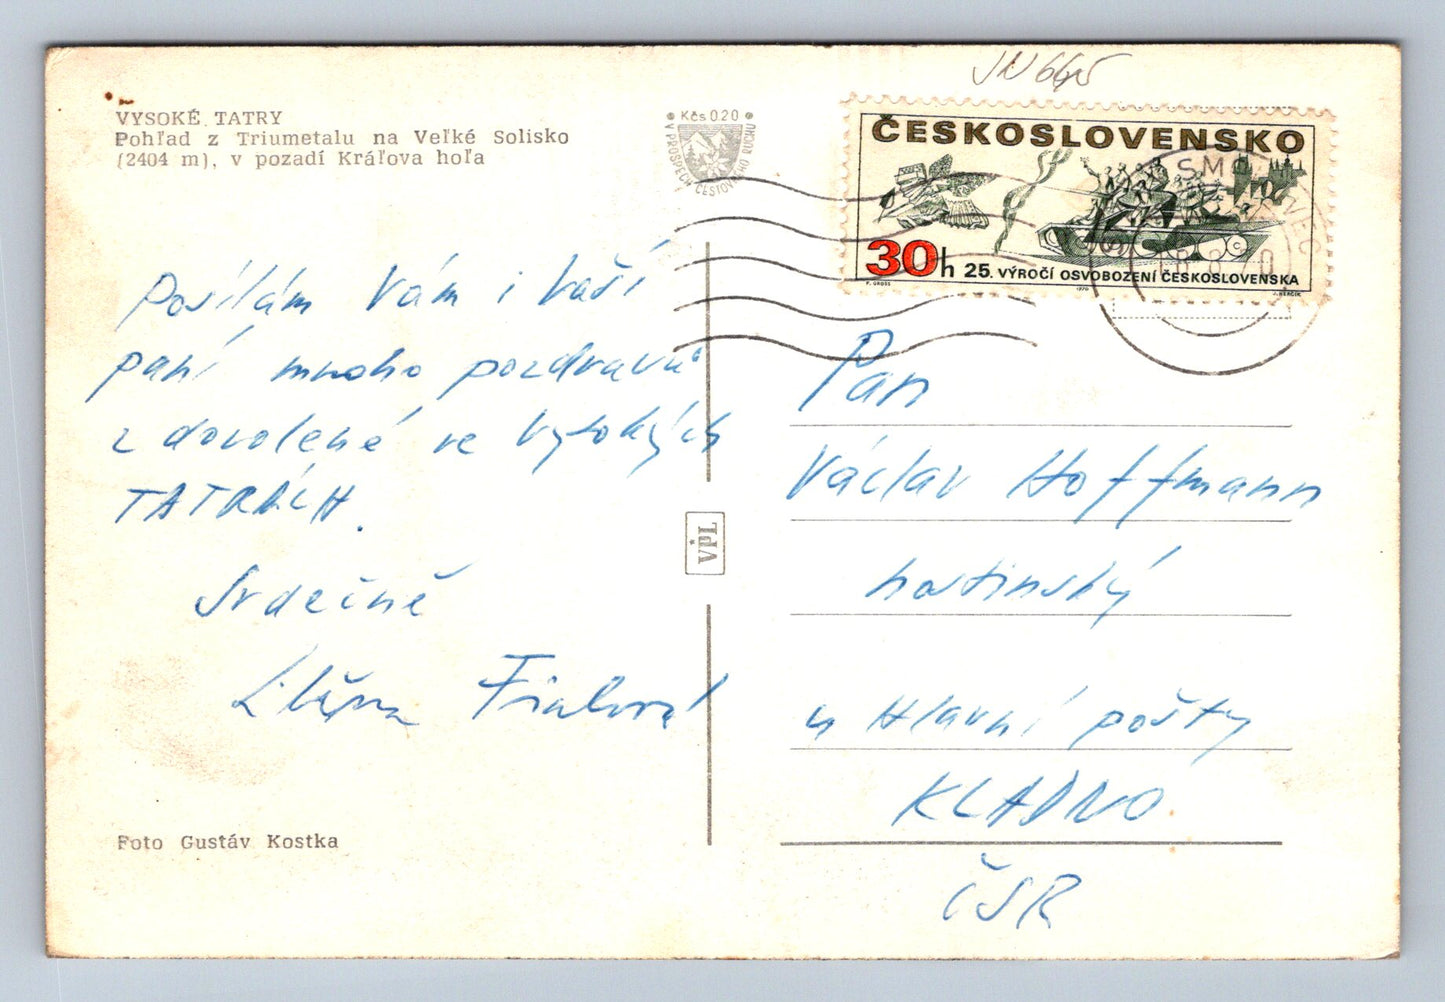 VYSOKÉ TATRY
Pohľad z Triumetalu na Veľké Solisko
(2404 m), v pozadí Kráľova hoľa
Kčs 0,20
V PROSPĚCH CESTOVNÍHO RUCHU
JN 665
ČESKOSLOVENSKO
30h 25. VÝROČÍ OSVOBOZENÍ ČESKOSLOVENSKA
F. GROSS 1970 J. HERČÍK
Posílám Vám i Vaší
paní mnoho pozdravů
z dovolené ve Vysokých
TATRÁCH.
Srdečně
Fialová
VPL
Foto Gustáv Kostka
Pan
Václav Hoffmann
hostinský
u Hlavní pošty
KLADNO
ČSR